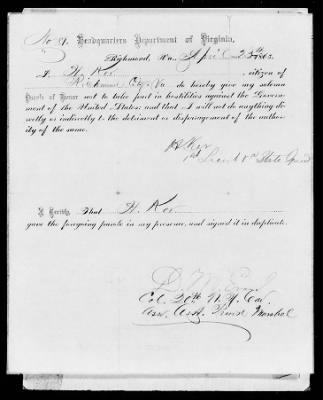 Headquarters Department of Virginia,
Richmond, Va., April 25th 1865.
I, H. Ker, citizen of
Richmond City Va do hereby give my solemn
Parole of Honor not to take part in hostilities against the Govern-
ment of the United States; and that I will not do anything di-
rectly or indirectly to the detriment or disparagement of the author-
ity of the same.
H Ker
1st Lieut Va State Guard
I Certify, That H. Ker
gave the foregoing parole in my presence, and signed it in duplicate.
Col. 20th N.Y. Cav.
Asst. Provost Marshal